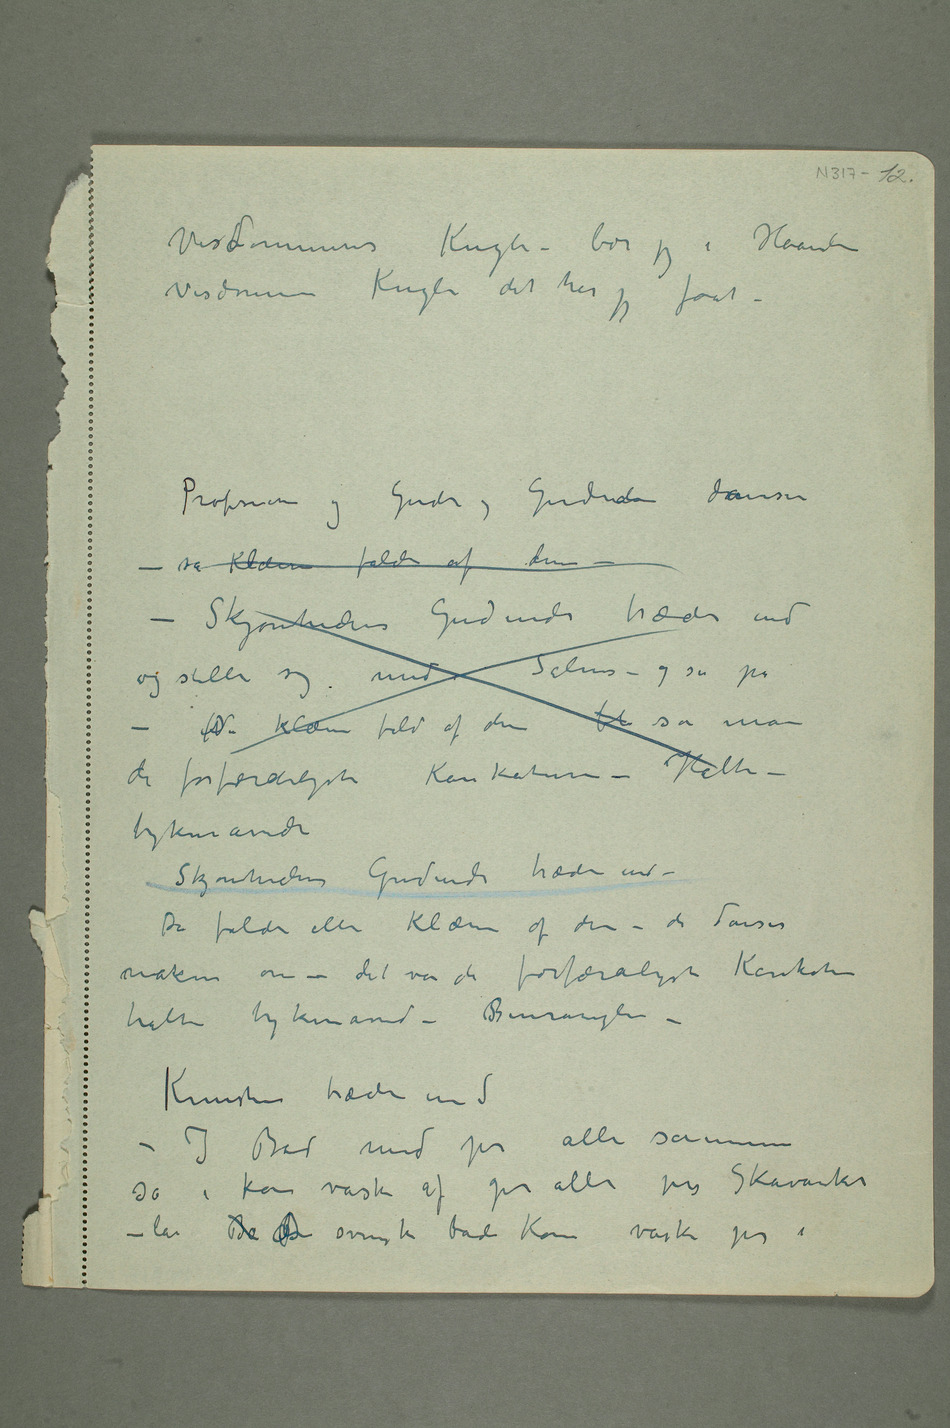 N317- 12.
Visdommens Kugle – bær jeg i Haanden
Visdommen Kugle det har jeg faat –
Professoren og Guder og Gudinden danser
– så Klæern falder af dem –
– Skjønhedens Gudinde træder ind
og stiller sig med Salens – og ser på
– Da klæerne fald af dem så man
de forfærdeligste Karikaturer – Halte –
tykmavede
Skjønhedens Gudinde træder ind –
Da falder alle Klæerne af dem – de danser
nakne om – det var de forfærdligste Karikaturer
halte tykmaved – Benrangler –
Kunsten træder ind
– I Bad med jer alle sammen
så i kan vaske af jer alle jers Skavanker
– lar svenske bade Kone vaske jer i